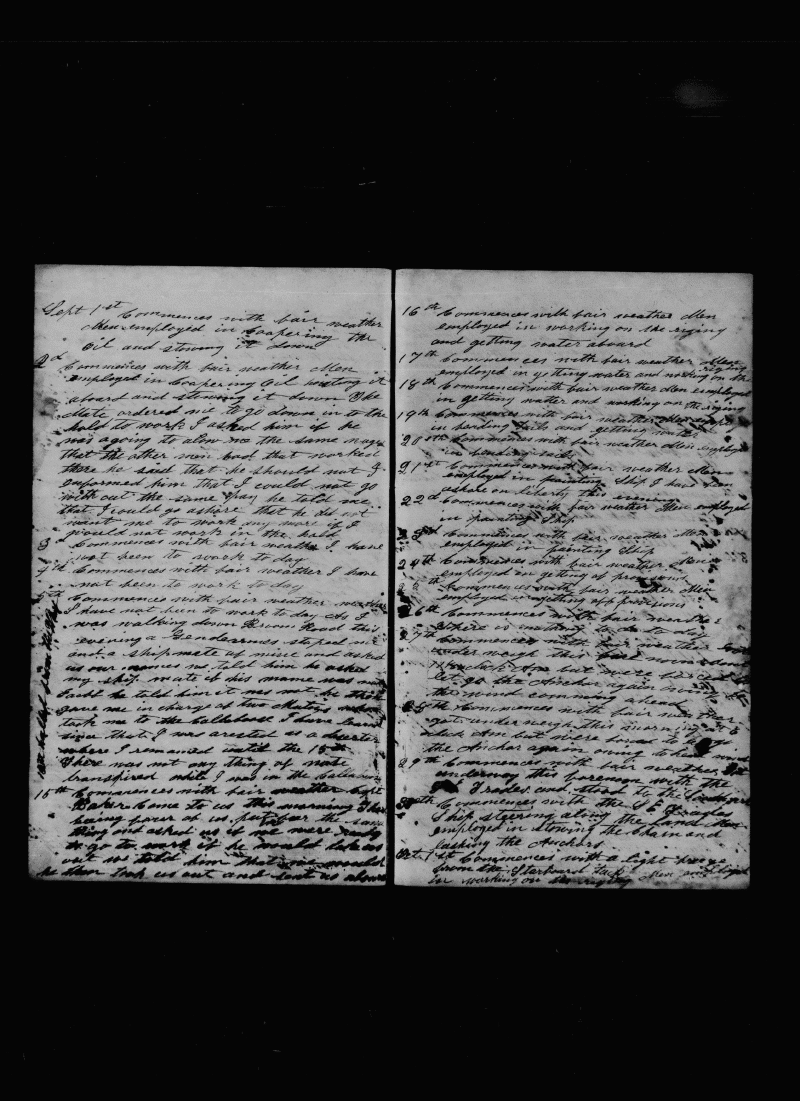 Sept 1st Commences with fair weather
Men employed in Coopering the
Oil and stowing it down
2d Commences with fair weather Men
employed in Coopering Oil hoisting it
aboard and stowing it down The
Mate ordered me to go down in to the
hold to work I asked him if he
was agoing to alow me the same wages
that the other men had that worked
there he said that he should not I
enformed him that I could not go
with out the same pay he told me
that I could go ashore that he did not
want me to work any more if I
would not work in the hold
3d Commences with fair weather I have
not been to work to day
4th Commences with fair weather I have
not been to work to day
5th Commences with fair weather
I have not been to work to day As I
was walking down Road this
evening a Genderumes stoped me
and a shipmate of mine and asked
us our names we told him he asked
my ship mate if his name was not
he told him it was not he then
gave me in charge of two
took me to the Calaboose I have learnt
since that I was arested as a deserter
where I remained until the 15th
There was not any thing of note
transpired while I was in the
15th Commences with fair weather Capt
Baker Came to us this morning
being four of us put for the same
thing and asked us if we were ready
to go to work if he would take us
out we told him that we would
he then took us out and sent us aboard
16th Commences with fair weather Men
employed in working on the riging
and getting water aboard
17th Commences with fair weather Men
employed in getting water and working on the riging
18th Commences with fair weather Men employed
in getting water and working on the riging
19th Commences with fair weather Men employed
in bending Sails and getting water
20th Commences with fair weather Men employed
in bending sails
21st Commences with fair weather Men
employed in painting Ship I have been
ashore on liberty this evening
22d Commences with fair weather Men employed
in painting Ship
23d Commences with fair weather Men
employed in painting Ship
24th Commences with fair weather Men
employed in getting of provisions
25th Commences with fair weather Men
employed in getting off provisions
26th Commences with fair weather
there is nothing to do to day
27th Commences with fair weather
under weigh this
Am but were forced to
let go the Anchor again owing to
the wind comming ahead
28th Commences with fair weather
got under weigh this morning at
Am but were forced to
the Anchor again owing to head wind
29th Commences with fair weather Got
underway this forenoon with the
Trades and stood to the
30th Commences with the S E Trades
Ship steering along the land Men
employed in stowing the Chain and
lashing the Anchors
Oct 1st Commences with a light breeze
from the Starboard tack Men employed
in working on the riging